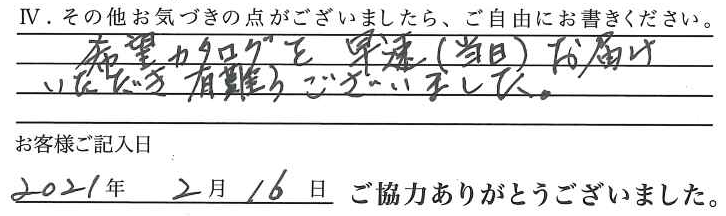 Ⅳ．その他お気づきの点がございましたら、ご自由にお書きください。
希望カタログを 早速(当日)お届け
いただき有難うございました。
お客様ご記入日
2021年 2月 16日 ご協力ありがとうございました。